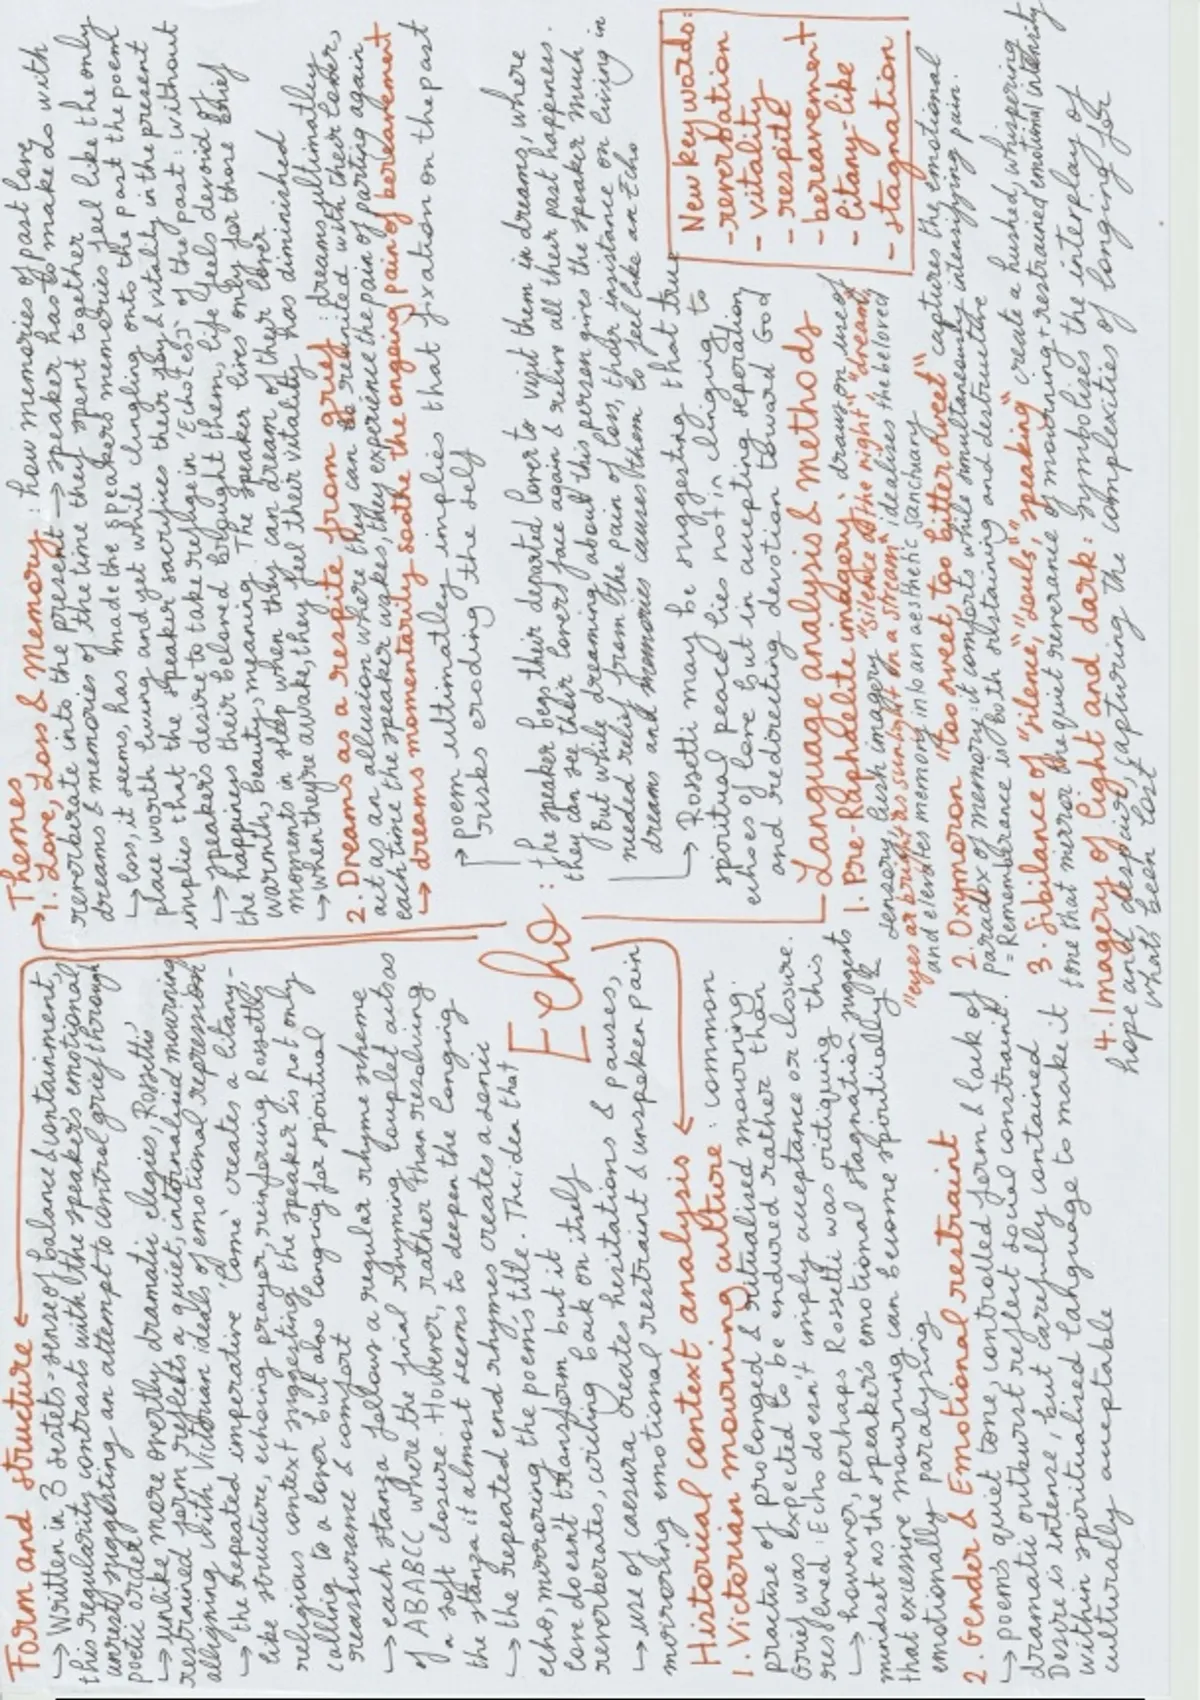 Form and structure
↳ Written in 3 sestets = sense of balance & containment,
this regularity contrasts with the speaker's emotional
unrest, suggesting an attempt to control grief through
poetic order
↳ unlike more overtly dramatic elegies, Rossetti's
restrained form reflects a quiet, internalised mourning
aligning with Victorian ideals of emotional repression
→ the repeated imperative 'come' creates a litany-
like structure, echoing prayer, reinforcing Rossetti's
religious context suggesting the speaker is not only
calling to a lover but also longing for spiritual
reassurance & comfort
→ each stanza follows a regular rhyme scheme
of ABABCC where the final rhyming couplet acts as
a soft closure. However, rather than resolving
the stanza it almost seems to deepen the longing
↳ the repeated end rhymes creates a sonic
echo, mirroring the poem's title. The idea that
love doesn't transform but it
reverberates, circling back on itself
→ use of caesura creates hesitations & pauses,
mirroring emotional restraint & unspoken pain
Historical context analysis
1. Victorian mourning culture : common
practise of prolonged & ritualised mourning.
Grief was expected to be endured rather than
resolved : Echo doesn't imply acceptance or closure.
↳ however, perhaps Rossetti was critiquing this
mindset as the speaker's emotional stagnation suggests
that excessive mourning can become spiritually &
emotionally paralysing
2. Gender & Emotional restraint
↳ poem's quiet tone, controlled form & lack of
dramatic outburst reflect social constraint.
Desire is intense, but carefully contained
within spiritualised language to make it
culturally acceptable
Echo
Themes
1. Love, Loss & Memory : how memories of past love
reverberate into the present → speaker has to make do with
dreams & memories of the time they spent together
↳ loss, it seems, has made the speaker's memories feel like the only
place worth living and yet while clinging onto the past the poem
implies that the speaker sacrifices their joy & vitality in the present
→ speaker's desire to take refuge in 'Echo[es]' of the past : without
the happiness their beloved brought them, life feels devoid of
warmth, beauty, meaning. The speaker lives only for those brief
moments in sleep when they can dream of their lover
↳ when they're awake, they feel their vitality has diminished
2. Dreams as a respite from grief : dreams ultimately
act as an allusion where they can be reunited with their lover,
each time the speaker wakes, they experience the pain of parting again
→ dreams momentarily soothe the ongoing pain of bereavement
→ poem ultimatley implies that fixation on the past
risks eroding the self
: the speaker begs their departed lover to visit them in dreams, where
they can see their lovers face again & relive all their past happiness.
But while dreaming about this person gives the speaker much
needed relief from the pain of loss, their insistance on living in
dreams and memories causes them to feel like an Echo
↳ Rossetti may be suggesting that true
spiritual peace lies not in clinging to
echoes of love but in accepting separation
and redirecting devotion toward God
New key words:
- reverbation
- vitality
- respite
- bereavement
- litany-like
- stagnation
Language analysis & methods
1. Pre-Raphaelite imagery : draws on use of
sensory, lush imagery "silence of the night" "dream",
"eyes as bright as sunlight on a stream" idealises the beloved
and elevates memory into an aesthetic sanctuary
2. Oxymoron "too sweet, too bitter sweet" captures the emotional
paradox of memory: it comforts while simultaneously intensifying pain.
= Rememberence is both sustaining and destructive
3. Sibilance of "silence," "souls," "speaking" create a hushed, whispering
tone that mirror the quiet reverance of mourning + restrained emotional intensity
4. Imagery of light and dark : symbolises the interplay of
hope and despair, capturing the complexities of longing for
whats been lost